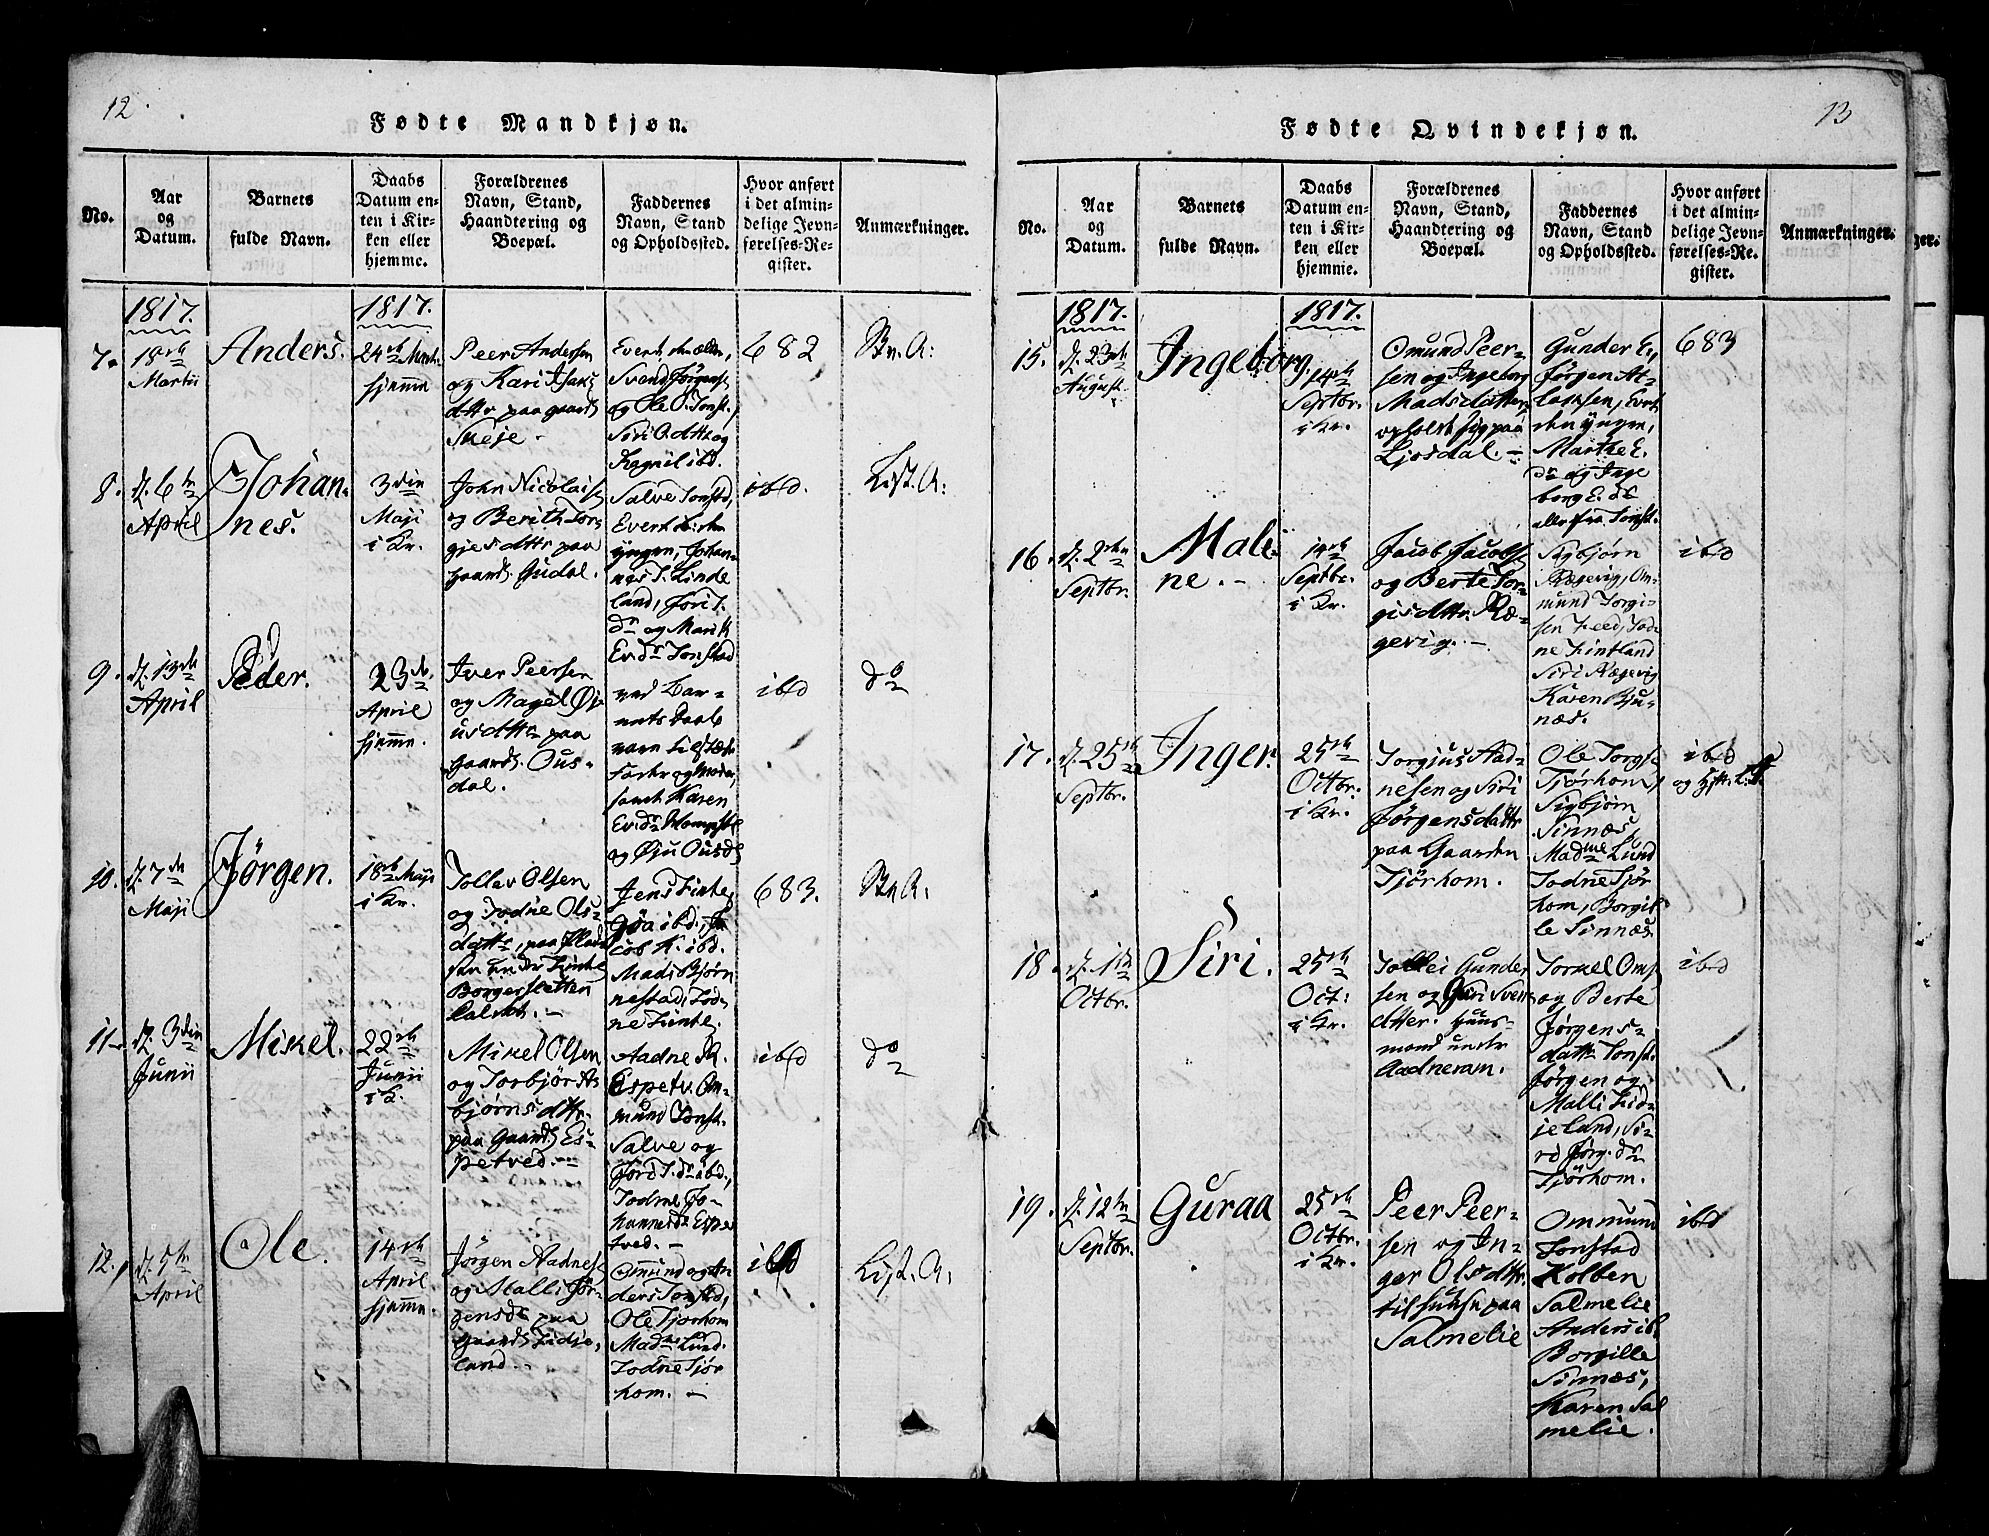 12.
Fødte Mandkjøn.
No.
Aar
og
Datum.
Barnets
fulde Navn.
Daabs
Datum en-
ten i Kir-
ken eller
hjemme.
Forældrenes
Navn, Stand,
Haandtering og
Boepæl.
Faddernes
Navn, Stand
og Opholdssted.
Hvor anført
i det almin-
delige Jevn-
førelses-Re-
gister.
Anmærkninger.
1817.
1817.
7.
18de
Martii
Anders.
24de Martii
hjemme
Peer Andersen
og Kari Isaks
dttr paa gaard
Skeje -
Evert den ældre,
Svend Jørgens
og Ole O. Tonst.,
Siri O. dttr og
Ragnil ibd.
682
8.
d. 6te
April
Johan-
nes.
3die
Maji
i Kr.
John Nicolais
og Berith Tor-
gjesdttr paa
gaard Gudal.
Salve Tonstad,
Evert den
yngre, Johan-
nes T. Linde
land, Jori T.
dr og Mari K
Ev.dr Tonstad
ibd.
List. A:
9.
d. 13de
April
Peder.
23de
April
hjemme.
Iver Peersen
og Magel Øi-
usdttr paa
Gaard. Ous-
dal.
ved Bar-
nets Daab
vare tilstæde
samt Karen
og Øju Ousd
ibd
do
10.
d. 7de
Maji
Jørgen.
18de Maji
i Kr.
Tollev Olsen
og Todne Ols-
dattr, paa
Jens Finte,
Gøa ibd., Ja
cob K. ibd.
Madi Bjørn
nestad, Tod-
ne Finte.
683.
11.
d. 3die
Junii
Mikel.
22de
Junii
i K.
Mikel Olsen
og Torbjør As
bjørnsdttr.
paa Gaard Es-
petved. -
Aadne R.
Espetv. Om-
mund Tonst.
Salve og
Jori T. dr ibd.,
Todne Jo-
hannesdr Espe
tved. -
ibd
do
12.
d. 5te
April
Ole.
14de
April
hjemme.
Jørgen Aadnes
og Malli Jør-
gensdr paa
Gaard Fidje-
land. -
Ommund og An
ders Tonstad,
Ole Tjørhom
Madme Lund.
Todne Tjør
hom. -
ibd
List. A.
13
Fødte Qvindekjøn.
No.
Aar
og
Datum.
Barnets
fulde Navn.
Daabs
Datum en-
ten i Kir-
ken eller
hjemme.
Forældrenes
Navn, Stand,
Haandtering og
Boepæl.
Faddernes
Navn, Stand
og Opholdssted.
Hvor anført
i det almin-
delige Jevn-
førelses-Re-
gister.
Anmærkninger.
1817.
1817.
15.
d. 23de
August
Ingeborg.
14de
Septbr.
i Kr.
Omund Peer-
sen og Ingeborg
Madsdatter
opholdt sig paa
Ljosdal. -
Gunder E.,
Jørgen At-
laksen, Evrt
den yngre,
Marthe E.
dr og Inge
borg E. dr
alle fra Tonst.
683
16.
d. 2den
Septbr.
Male-
ne. -
14de
Septbr.
i Kr.
Jacob Jacobs
og Berte Tor-
gisdttr. Ræ-
gevig. -
Sigbjørn
Rægevig, Om-
mund Torgi-
sen Feed, Tod-
ne Fintland
Siri Rægevig
Karen Bju-
næs.
ibd
17.
d. 25de
Septbr.
Inger.
25de
Octbr.
i Kr.
Torgjus Aad-
nesen og Siri
Jørgensdattr
paa Gaarden
Tjørhom.
Ole Torgs
Tjørhom,
Sigbjørn
Sinnæs,
Madme Lund
Todne Tjør
hom, Borgil
le Sinnæs
ibd
18.
d. 1ste
Octbr.
Siri.
25de
Oct:
i Kr.
Tollei Gunder
sen og Guri Sven
dtter. Huus-
mand under
Aadneram.
Torkel Oms
og Berte
Jørgens-
dattr Tonst.
Jørgen og
Malli Fid-
jeland, Si-
ri Jørg. dr
Tjørhom.
ibd
19.
d. 12te
Septbr.
Guraa
25de
Octbr.
i Kr.
Peer Peer-
sen og In-
ger Olsdttr.
til huuse paa
Salmelie
Ommund
Tonstad
Kolben
Salmelie
Anders ib.
Borgille
Sinnæs,
Karen Sal
melie.
ibd